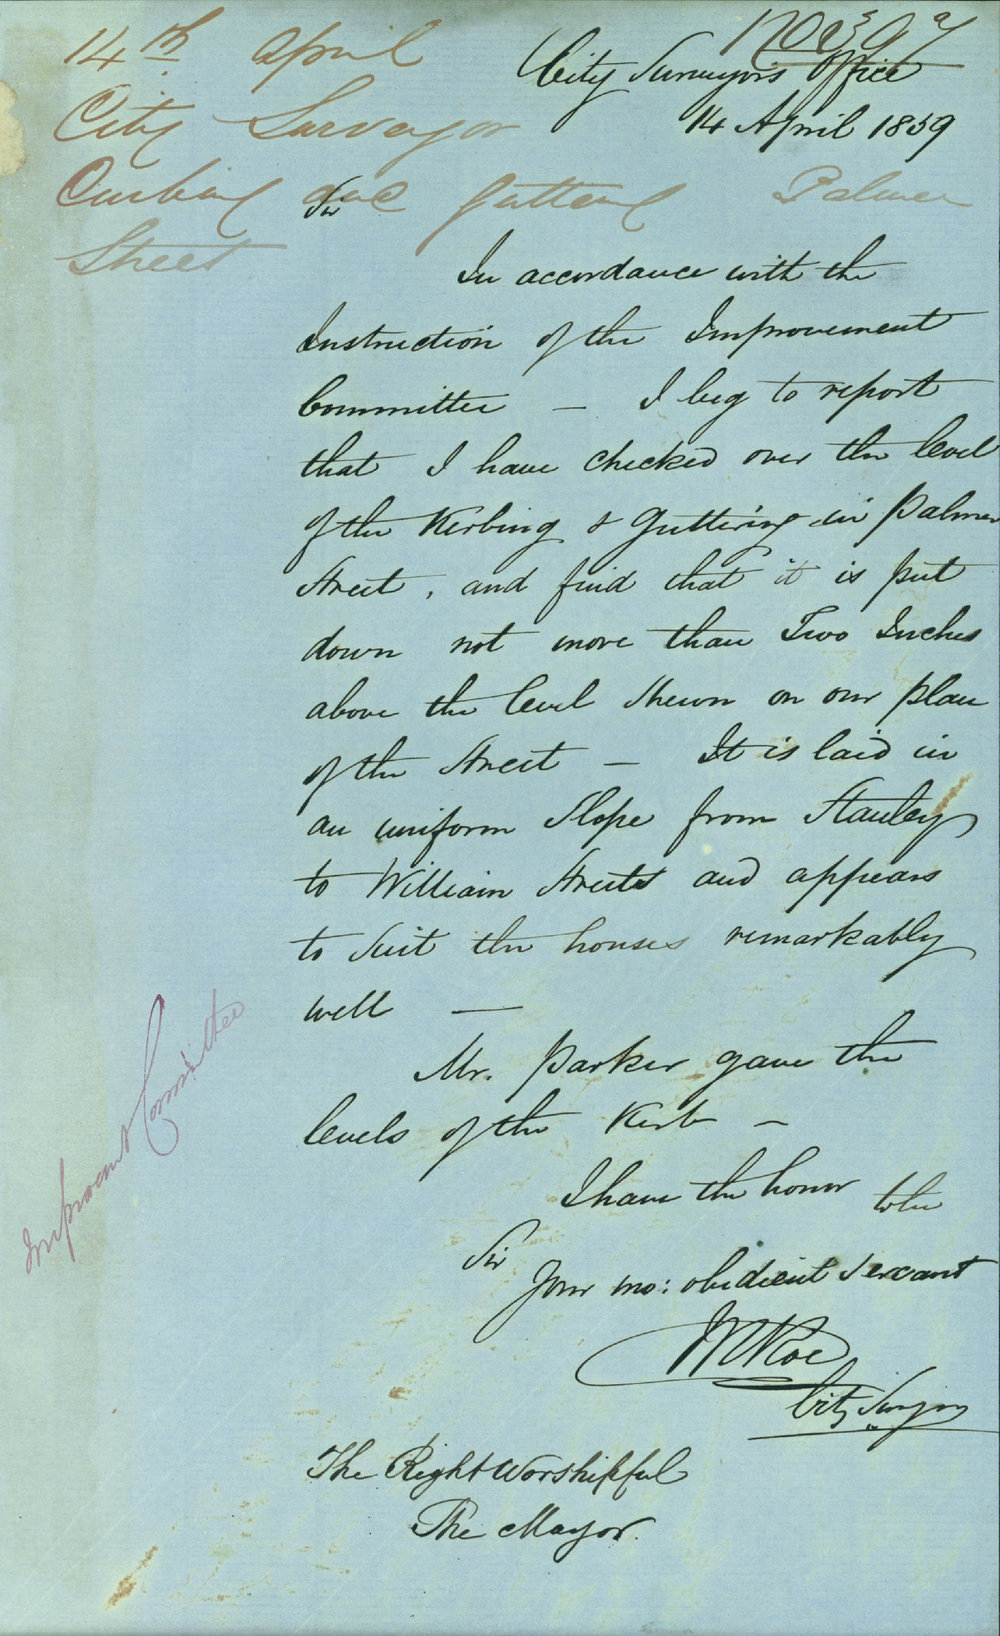 14th April
City Surveyor
Curbing and Guttering Palmer
Street
City Surveyors Office
14 April 1859
Sir
In accordance with the
Instruction of the Improvement
Committee — I beg to report
that I have checked over the level
of the Kerbing & Guttering in Palmer
Street, and find that it is put
down not more than Two Inches
above the level shewn on our plan
of the Street — It is laid in
an uniform slope from Stanley
to William Streets and appears
to suit the houses remarkably
well —
Mr. Parker gave the
levels of the Kerb —
I have the honor to be
Sir
Your mo: obedient servant
W Roe
City Surveyor
The Right Worshipful
The Mayor.
Improvement Committee